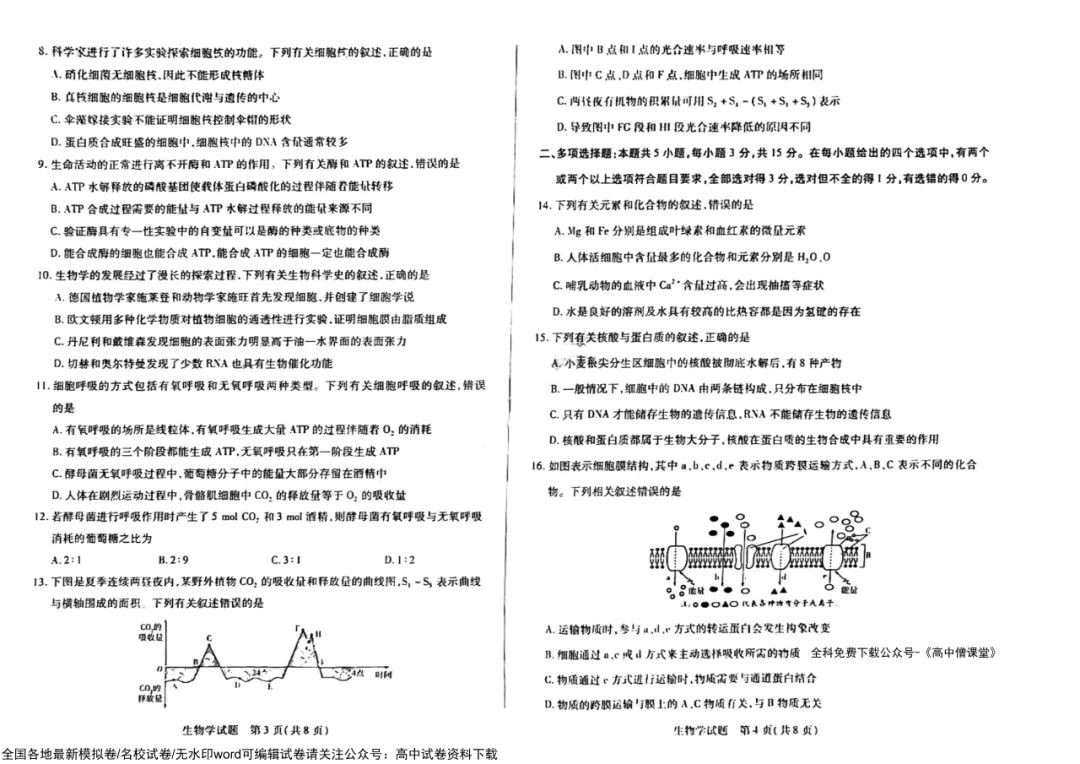 8. 科学家进行了许多实验探索细胞核的功能。下列有关细胞核的叙述,正确的是
A. 硝化细菌无细胞核,因此不能形成核糖体
B. 真核细胞的细胞核是细胞代谢与遗传的中心
C. 伞藻嫁接实验不能证明细胞核控制伞帽的形状
D. 蛋白质合成旺盛的细胞中,细胞核中的 DNA 含量通常较多
9. 生命活动的正常进行离不开酶和 ATP 的作用。下列有关酶和 ATP 的叙述,错误的是
A. ATP 水解释放的磷酸基团使载体蛋白磷酸化的过程伴随着能量转移
B. ATP 合成过程需要的能量与 ATP 水解过程释放的能量来源不同
C. 验证酶具有专一性实验中的自变量可以是酶的种类或底物的种类
D. 能合成酶的细胞也能合成 ATP,能合成 ATP 的细胞一定也能合成酶
10. 生物学的发展经过了漫长的探索过程,下列有关生物科学史的叙述,正确的是
A. 德国植物学家施莱登和动物学家施旺首先发现细胞,并创建了细胞学说
B. 欧文顿用多种化学物质对植物细胞的通透性进行实验,证明细胞膜由脂质组成
C. 丹尼利和戴维森发现细胞的表面张力明显高于油一水界面的表面张力
D. 切赫和奥尔特曼发现了少数 RNA 也具有生物催化功能
11. 细胞呼吸的方式包括有氧呼吸和无氧呼吸两种类型。下列有关细胞呼吸的叙述,错误
的是
A. 有氧呼吸的场所是线粒体,有氧呼吸生成大量 ATP 的过程伴随着 O₂ 的消耗
B. 有氧呼吸的三个阶段都能生成 ATP,无氧呼吸只在第一阶段生成 ATP
C. 酵母菌无氧呼吸过程中,葡萄糖分子中的能量大部分存留在酒精中
D. 人体在剧烈运动过程中,骨骼肌细胞中 CO₂ 的释放量等于 O₂ 的吸收量
12. 若酵母菌进行呼吸作用时产生了 5 mol CO₂ 和 3 mol 酒精,则酵母菌有氧呼吸与无氧呼吸
消耗的葡萄糖之比为
A. 2∶1 B. 2∶9 C. 3∶1 D. 1∶2
13. 下图是夏季连续两昼夜内,某野外植物 CO₂ 的吸收量和释放量的曲线图,S₁ ~ S₅ 表示曲线
与横轴围成的面积。下列有关叙述错误的是
CO₂的
吸收量
C
F
H
B
O
D
E
24
4点
时间
CO₂的
释放量
生物学试题 第 3 页(共 8 页)
A. 图中 B 点和 I 点的光合速率与呼吸速率相等
B. 图中 C 点、D 点和 F 点,细胞中生成 ATP 的场所相同
C. 两昼夜有机物的积累量可用 S₂ + S₄ - (S₁ + S₃ + S₅) 表示
D. 导致图中 FG 段和 HI 段光合速率降低的原因不同
二、多项选择题:本题共 5 小题,每小题 3 分,共 15 分。在每小题给出的四个选项中,有两个
或两个以上选项符合题目要求,全部选对得 3 分,选对但不全的得 1 分,有选错的得 0 分。
14. 下列有关元素和化合物的叙述,错误的是
A. Mg 和 Fe 分别是组成叶绿素和血红素的微量元素
B. 人体活细胞中含量最多的化合物和元素分别是 H₂O、O
C. 哺乳动物的血液中 Ca²⁺ 含量过高,会出现抽搐等症状
D. 水是良好的溶剂及水具有较高的比热容都是因为氢键的存在
15. 下列有关核酸与蛋白质的叙述,正确的是
A. 小麦根尖分生区细胞中的核酸被彻底水解后,有 8 种产物
B. 一般情况下,细胞中的 DNA 由两条链构成,只分布在细胞核中
C. 只有 DNA 才能储存生物的遗传信息,RNA 不能储存生物的遗传信息
D. 核酸和蛋白质都属于生物大分子,核酸在蛋白质的生物合成中具有重要的作用
16. 如图表示细胞膜结构,其中 a、b、c、d、e 表示物质跨膜运输方式,A、B、C 表示不同的化合
物。下列相关叙述错误的是
C
B
a
b
c
d
e
能量
能量
注:○●⬭▲○ 代表各种物质分子或离子.
A. 运输物质时,参与 a、d、e 方式的转运蛋白会发生构象改变
B. 细胞通过 a、c 或 d 方式来主动选择吸收所需的物质
全科免费下载公众号-《高中僧课堂》
C. 物质通过 c 方式进行运输时,物质需要与通道蛋白结合
D. 物质的跨膜运输与膜上的 A、C 物质有关,与 B 物质无关
生物学试题 第 4 页(共 8 页)
全国各地最新模拟卷/名校试卷/无水印word可编辑试卷请关注公众号：高中试卷资料下载